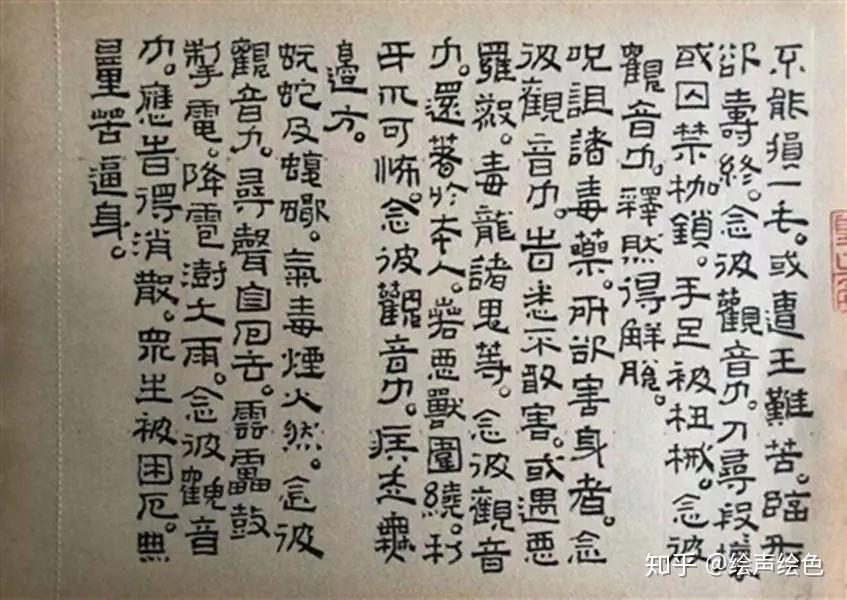 不能損一毛。或遭王難苦。臨刑
欲壽終。念彼觀音力。刀尋段壞
或囚禁枷鎖。手足被杻械。念彼
觀音力。釋然得解脫。
呪詛諸毒藥。所欲害身者。念
彼觀音力。旹悉不敢害。或遇惡
羅剎。毒龍諸鬼等。念彼觀音
力。還著於本人。若惡獸圍繞。利
牙爪可怖。念彼觀音力。疾走無
邊方。
蚖蛇及蝮蠍。氣毒煙火然。念彼
觀音力。尋聲自回去。雲雷鼓
掣電。降雹澍大雨。念彼觀音
力。應旹得消散。眾生被困厄。無
量苦逼身。
知乎 @绘声绘色